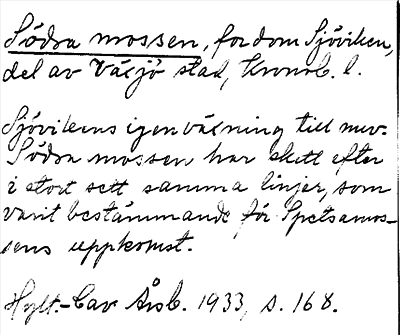 Södra mossen, fordom Sjöviken,
del av Växjö stad, Kronob. l.
Sjövikens igenväxning till nuv.
Södra mossen har skett efter
i stort sett samma linjer, som
varit bestämmande för Spetsamos-
sens uppkomst.
Hylt.-Cav Årsb. 1933, s. 168.